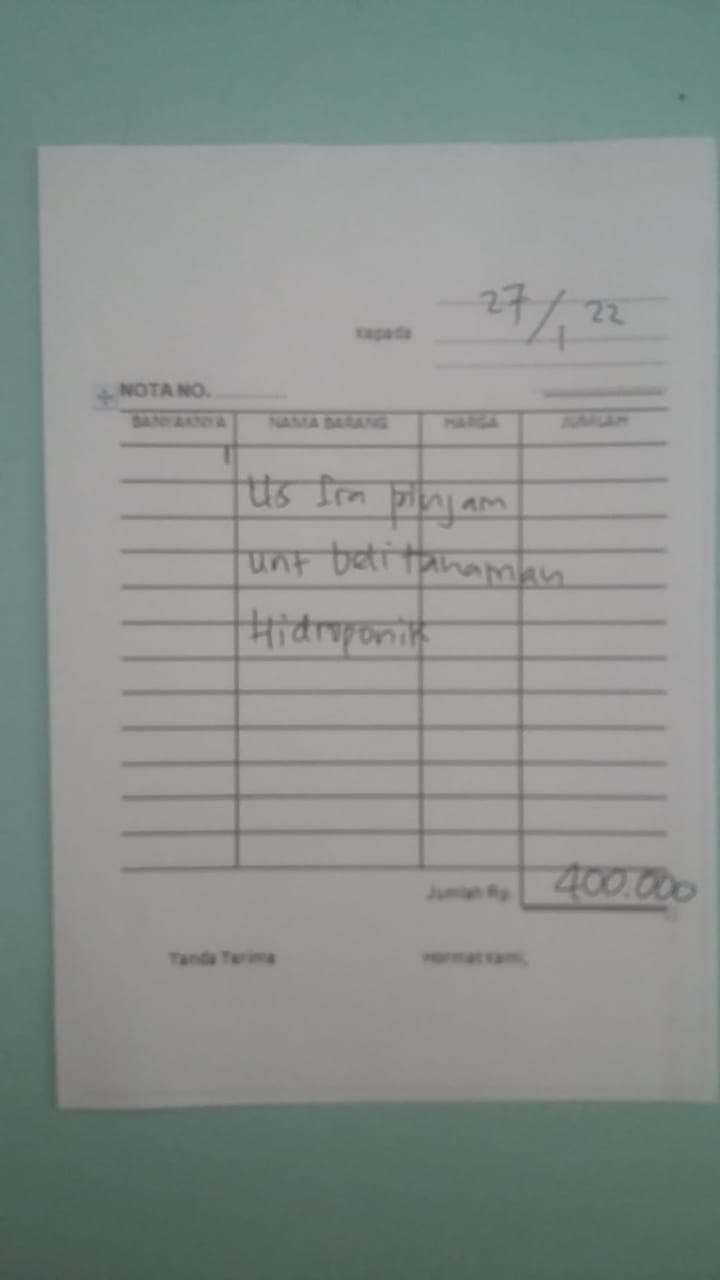 27/1 22
Kepada
NOTA NO.
BANYAKNYA NAMA BARANG HARGA JUMLAH
Us Ira pinjam
unt beli tanaman
Hidroponik
Jumlah Rp. 400.000
Tanda Terima Hormat Kami,